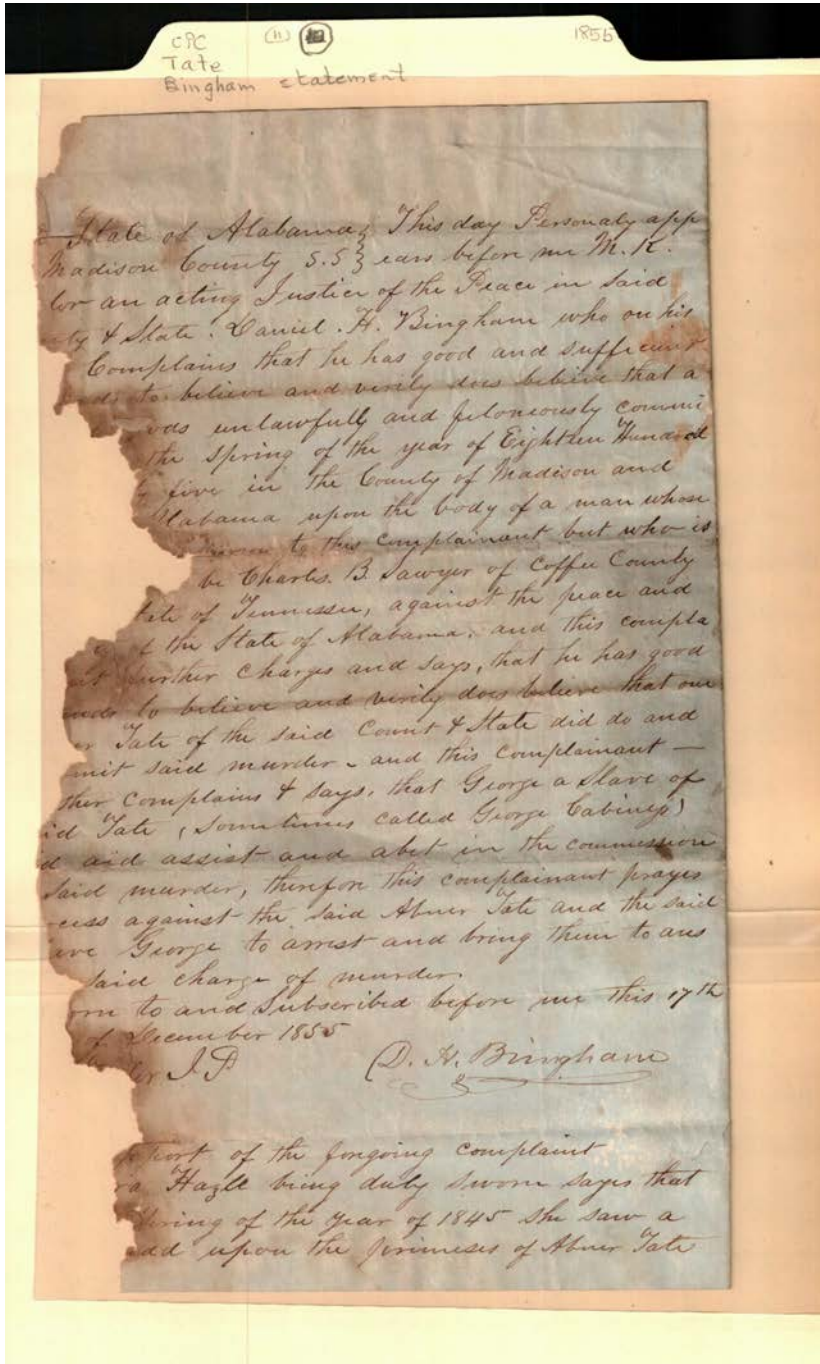 CPC (11) 1855
Tate
Bingham statement
State of Alabama } This day Personaly app
Madison County S.S } ears before me M. K.
lor an acting Justice of the Peace in Said
ty & State. Daniel. H. Bingham who on his
Complains that he has good and sufficient
to believe and verily does believe that a
was unlawfully and feloneously commit
the Spring of the year of Eighteen Hundred
five in the County of Madison and
Alabama upon the body of a man whose
to this complainant but who is
be Charles. B. Sawyer of Coffee County
ate of Tennessee, against the peace and
of the State of Alabama. and this compla
further charges and says, that he has good
unds to believe and verily does believe that one
er Tate of the said Count & State did do and
mit said murder - and this complainant —
ther complains & says, that George a Slave of
id Tate (Sometimes called George Cabiness)
d aid assist and abet in the commission
Said murder, therefore this complainant prayes
cess against the said Abner Tate and the said
ave George to arrest and bring them to ans
Said charge of murder.
orn to and Subscribed before me this 17th
of December 1855
or J. P D. H. Bingham
port of the forgoing complaint
ra Hazle being duly Sworn sayes that
pring of the year of 1845 she saw a
upon the primeses of Abner Tate